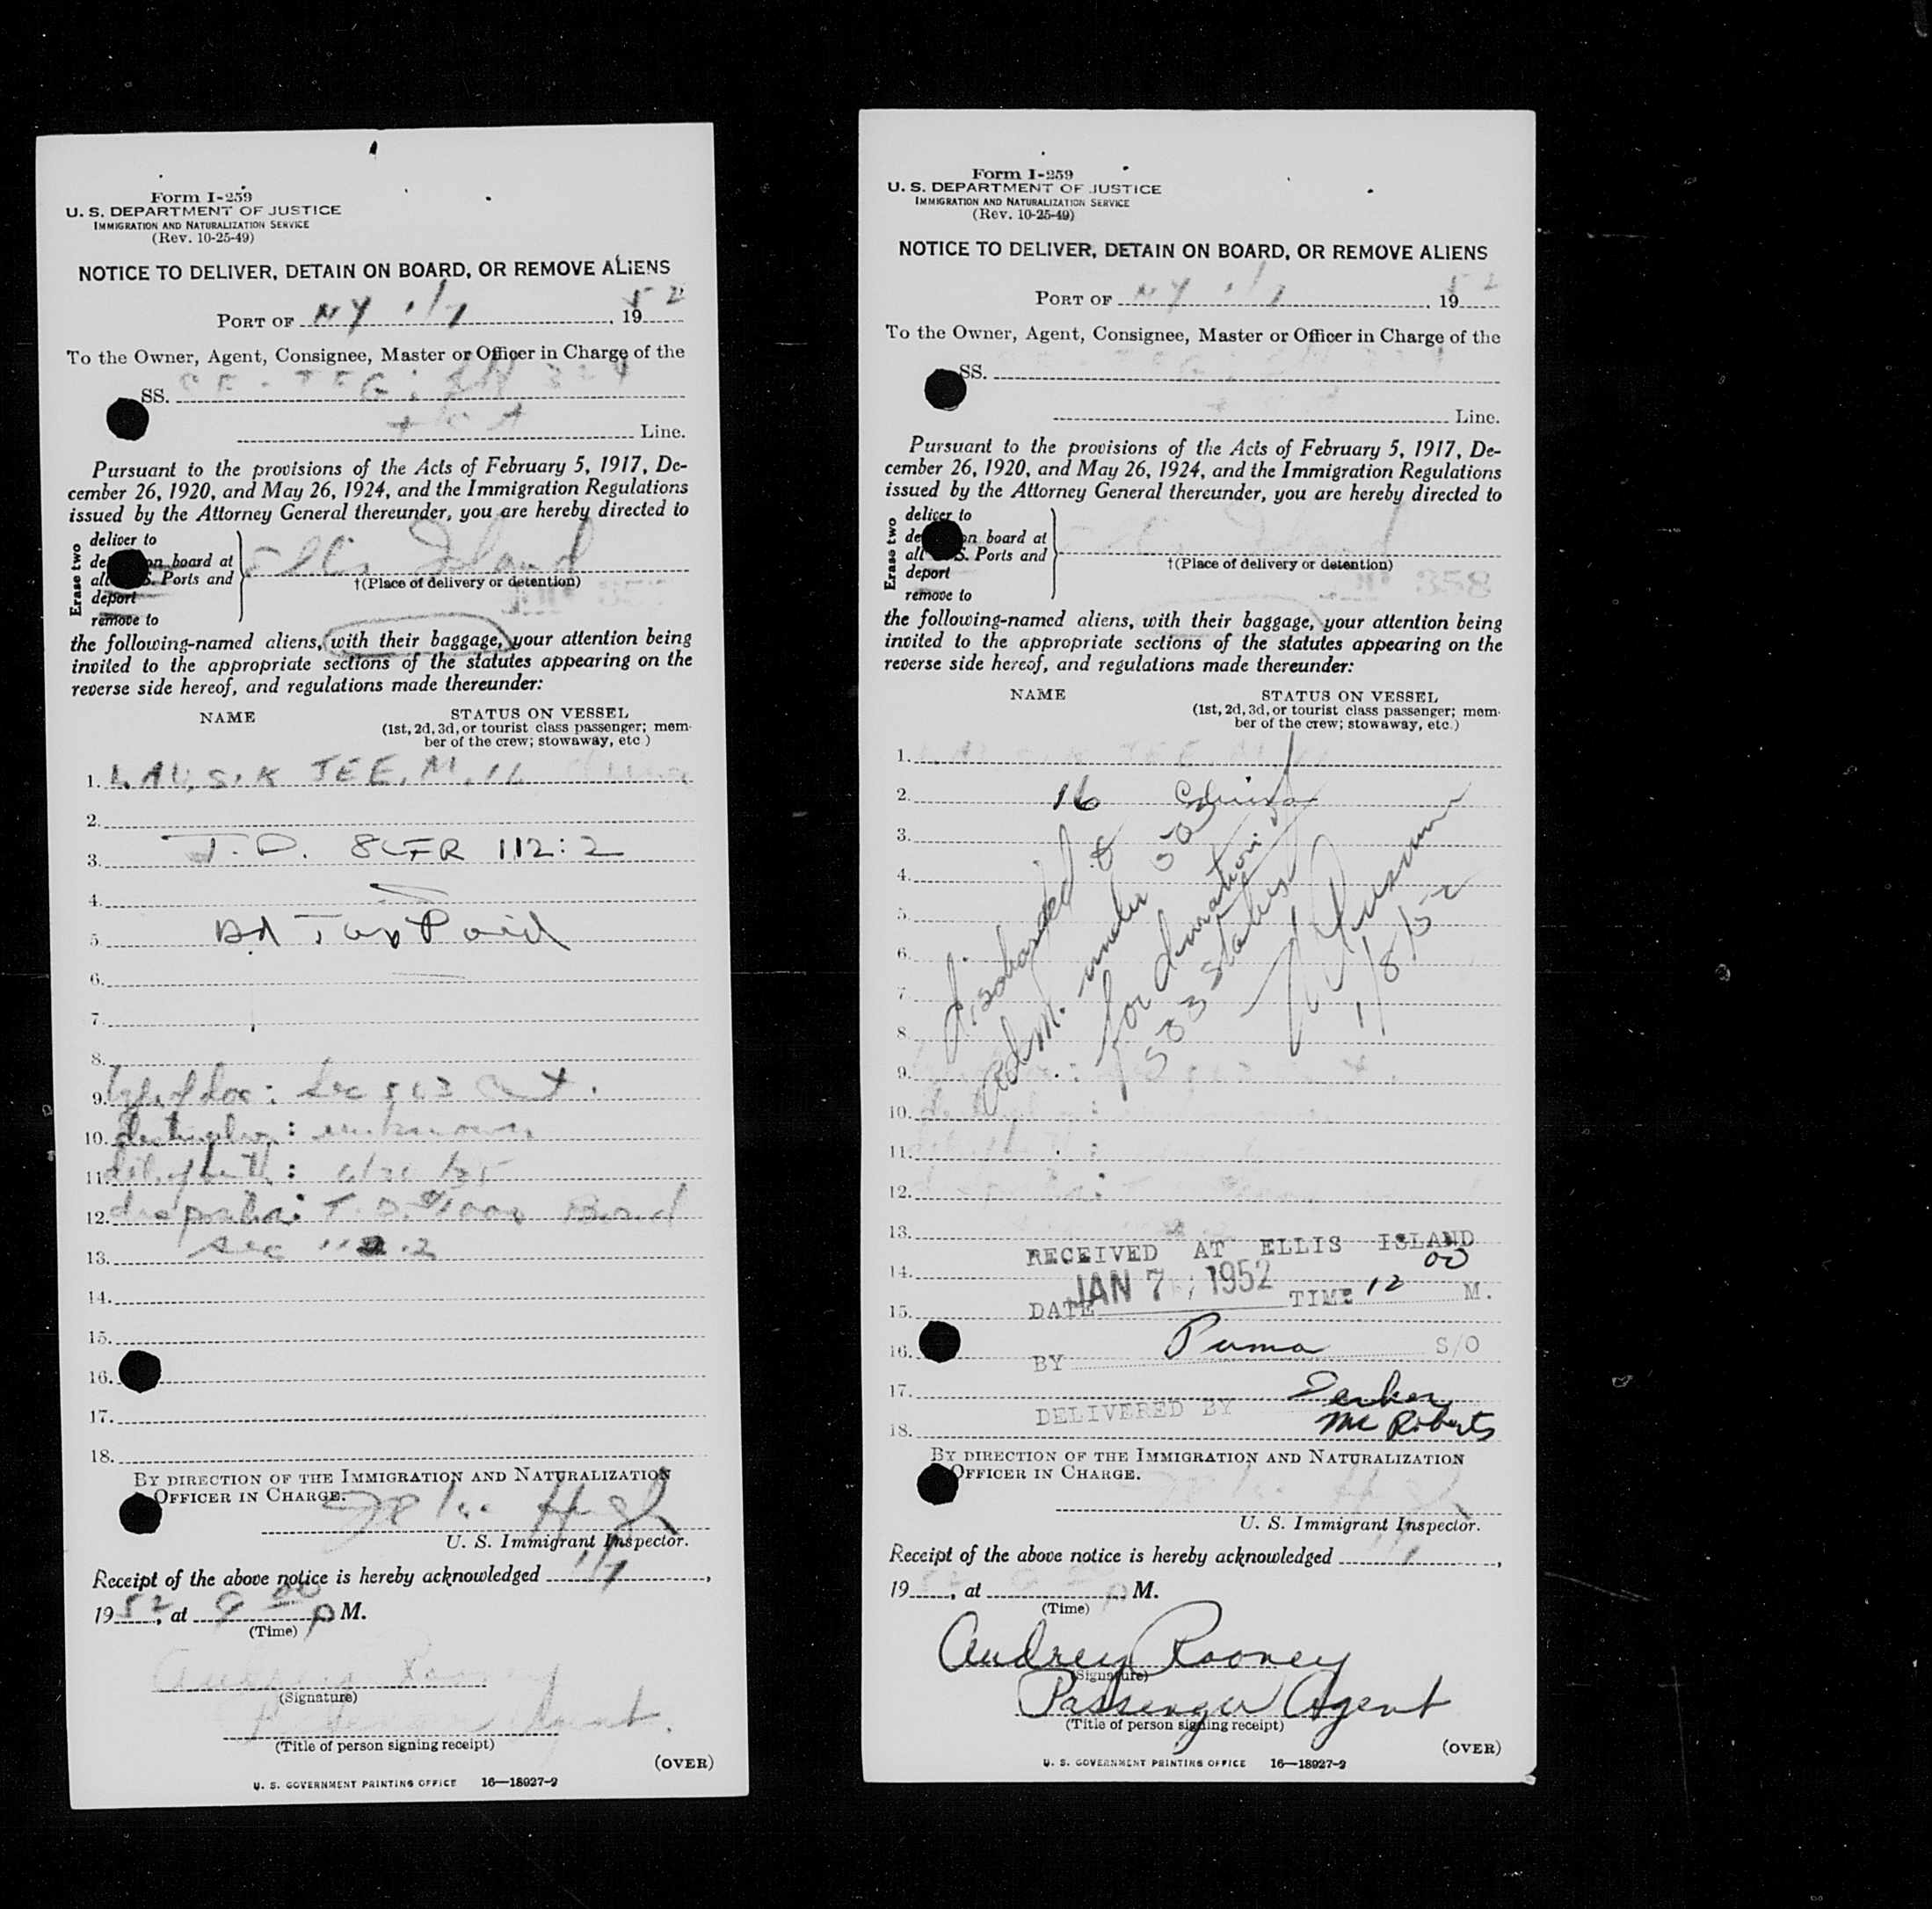 Form I-259
U. S. DEPARTMENT OF JUSTICE
IMMIGRATION AND NATURALIZATION SERVICE
(Rev. 10-25-49)
NOTICE TO DELIVER, DETAIN ON BOARD, OR REMOVE ALIENS
PORT OF NY 1/7, 1952
To the Owner, Agent, Consignee, Master or Officer in Charge of the
SS.
Line.
Pursuant to the provisions of the Acts of February 5, 1917, De-
cember 26, 1920, and May 26, 1924, and the Immigration Regulations
issued by the Attorney General thereunder, you are hereby directed to
Erase two
deliver to
on board at
Ports and
deport
remove to
Ellis Island
†(Place of delivery or detention)
the following-named aliens, with their baggage, your attention being
invited to the appropriate sections of the statutes appearing on the
reverse side hereof, and regulations made thereunder:
NAME
STATUS ON VESSEL
(1st, 2d, 3d, or tourist class passenger; mem-
ber of the crew; stowaway, etc.)
1. LAU, SIK TEE, M, 16
2.
3. T.D. 8 CFR 112:2
4.
5. Hd Tax Paid
6.
7.
8.
9.
10. destination: unknown
11. date of birth:
12. disposition: T.D. $1000 Bond
13. Sec 112.2
14.
15.
16.
17.
18.
BY DIRECTION OF THE IMMIGRATION AND NATURALIZATION
OFFICER IN CHARGE.
U. S. Immigrant Inspector.
Receipt of the above notice is hereby acknowledged 1/7,
1952, at 9 00 P M.
(Time)
Audrey Rooney
(Signature)
Passenger Agent.
(Title of person signing receipt)
(OVER)
U. S. GOVERNMENT PRINTING OFFICE 16—18027-2
Form I-259
U. S. DEPARTMENT OF JUSTICE
IMMIGRATION AND NATURALIZATION SERVICE
(Rev. 10-25-49)
NOTICE TO DELIVER, DETAIN ON BOARD, OR REMOVE ALIENS
PORT OF NY 1/7, 1952
To the Owner, Agent, Consignee, Master or Officer in Charge of the
SS.
Line.
Pursuant to the provisions of the Acts of February 5, 1917, De-
cember 26, 1920, and May 26, 1924, and the Immigration Regulations
issued by the Attorney General thereunder, you are hereby directed to
Erase two
deliver to
on board at
Ports and
deport
remove to
Ellis Island
†(Place of delivery or detention)
358
the following-named aliens, with their baggage, your attention being
invited to the appropriate sections of the statutes appearing on the
reverse side hereof, and regulations made thereunder:
NAME
STATUS ON VESSEL
(1st, 2d, 3d, or tourist class passenger; mem-
ber of the crew; stowaway, etc.)
1. LAU, SIK TEE, M, 16
2. 16 China
3.
4.
5.
6.
7.
8.
9.
10.
11.
12.
Discharged &
adm. under 503
for duration of
503 status
1/8/52
13.
RECEIVED AT ELLIS ISLAND
14.
DATE JAN 7, 1952 TIME 12 00 M.
15.
16.
BY Puma S/O
17.
DELIVERED BY
18. McRoberts
BY DIRECTION OF THE IMMIGRATION AND NATURALIZATION
OFFICER IN CHARGE.
U. S. Immigrant Inspector.
Receipt of the above notice is hereby acknowledged 1/7,
1952, at 9 00 P M.
(Time)
Audrey Rooney
(Signature)
Passenger Agent
(Title of person signing receipt)
(OVER)
U. S. GOVERNMENT PRINTING OFFICE 16—18027-2